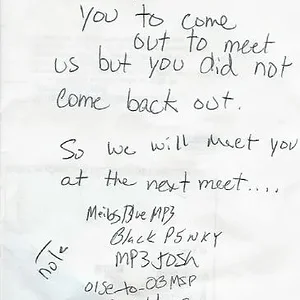 You to come
out to meet
us but you did not
come back out.
So we will meet you
at the next meet....
Black P5NKY
MP3 Josh
note